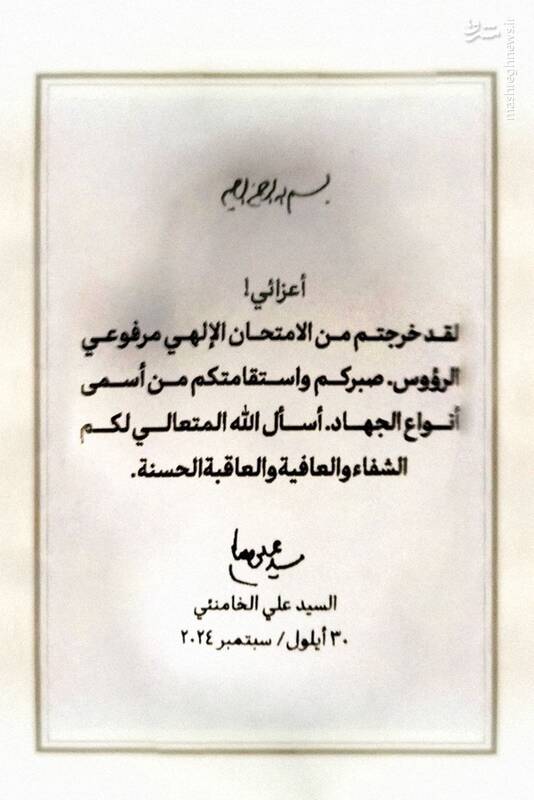 مشرق
mashreghnews.ir
بسم الله الرحمن الرحیم
أعزائي!
لقد خرجتم من الامتحان الإلهي مرفوعي
الرؤوس. صبركم واستقامتكم من أسمى
أنواع الجهاد. أسأل الله المتعالي لكم
الشفاء والعافية والعاقبة الحسنة.
السيد علي الخامنئي
٣٠ أيلول/ سبتمبر ٢٠٢٤